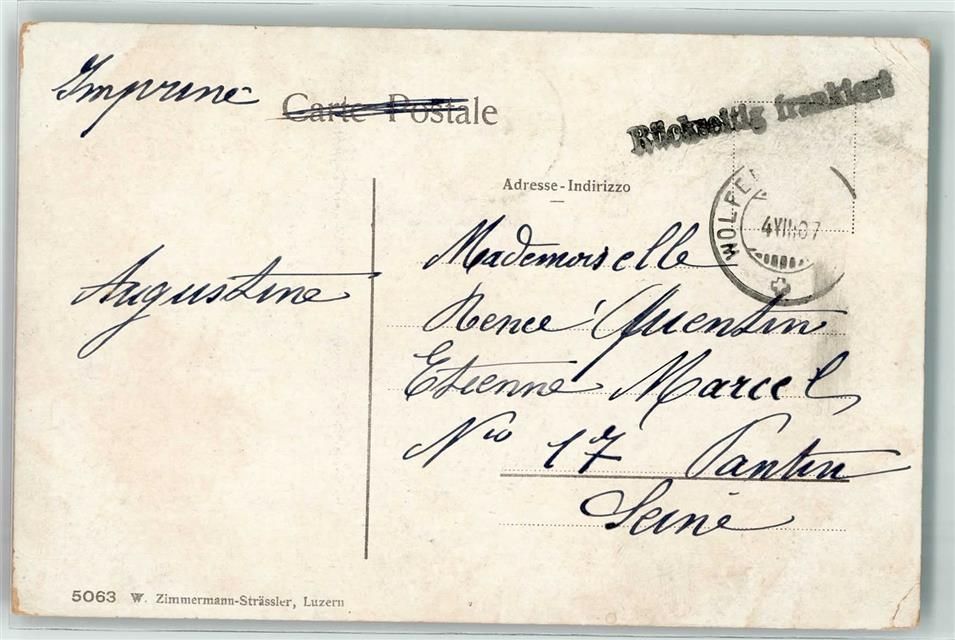 Imprimé
Carte Postale
Rückseitig frankiert
Adresse-Indirizzo
4 VII 07
Augustine
Mademoiselle
Renée Quentin
Etienne Marcel
No 17 Pantin
Seine
5063 W. Zimmermann-Strässler, Luzern